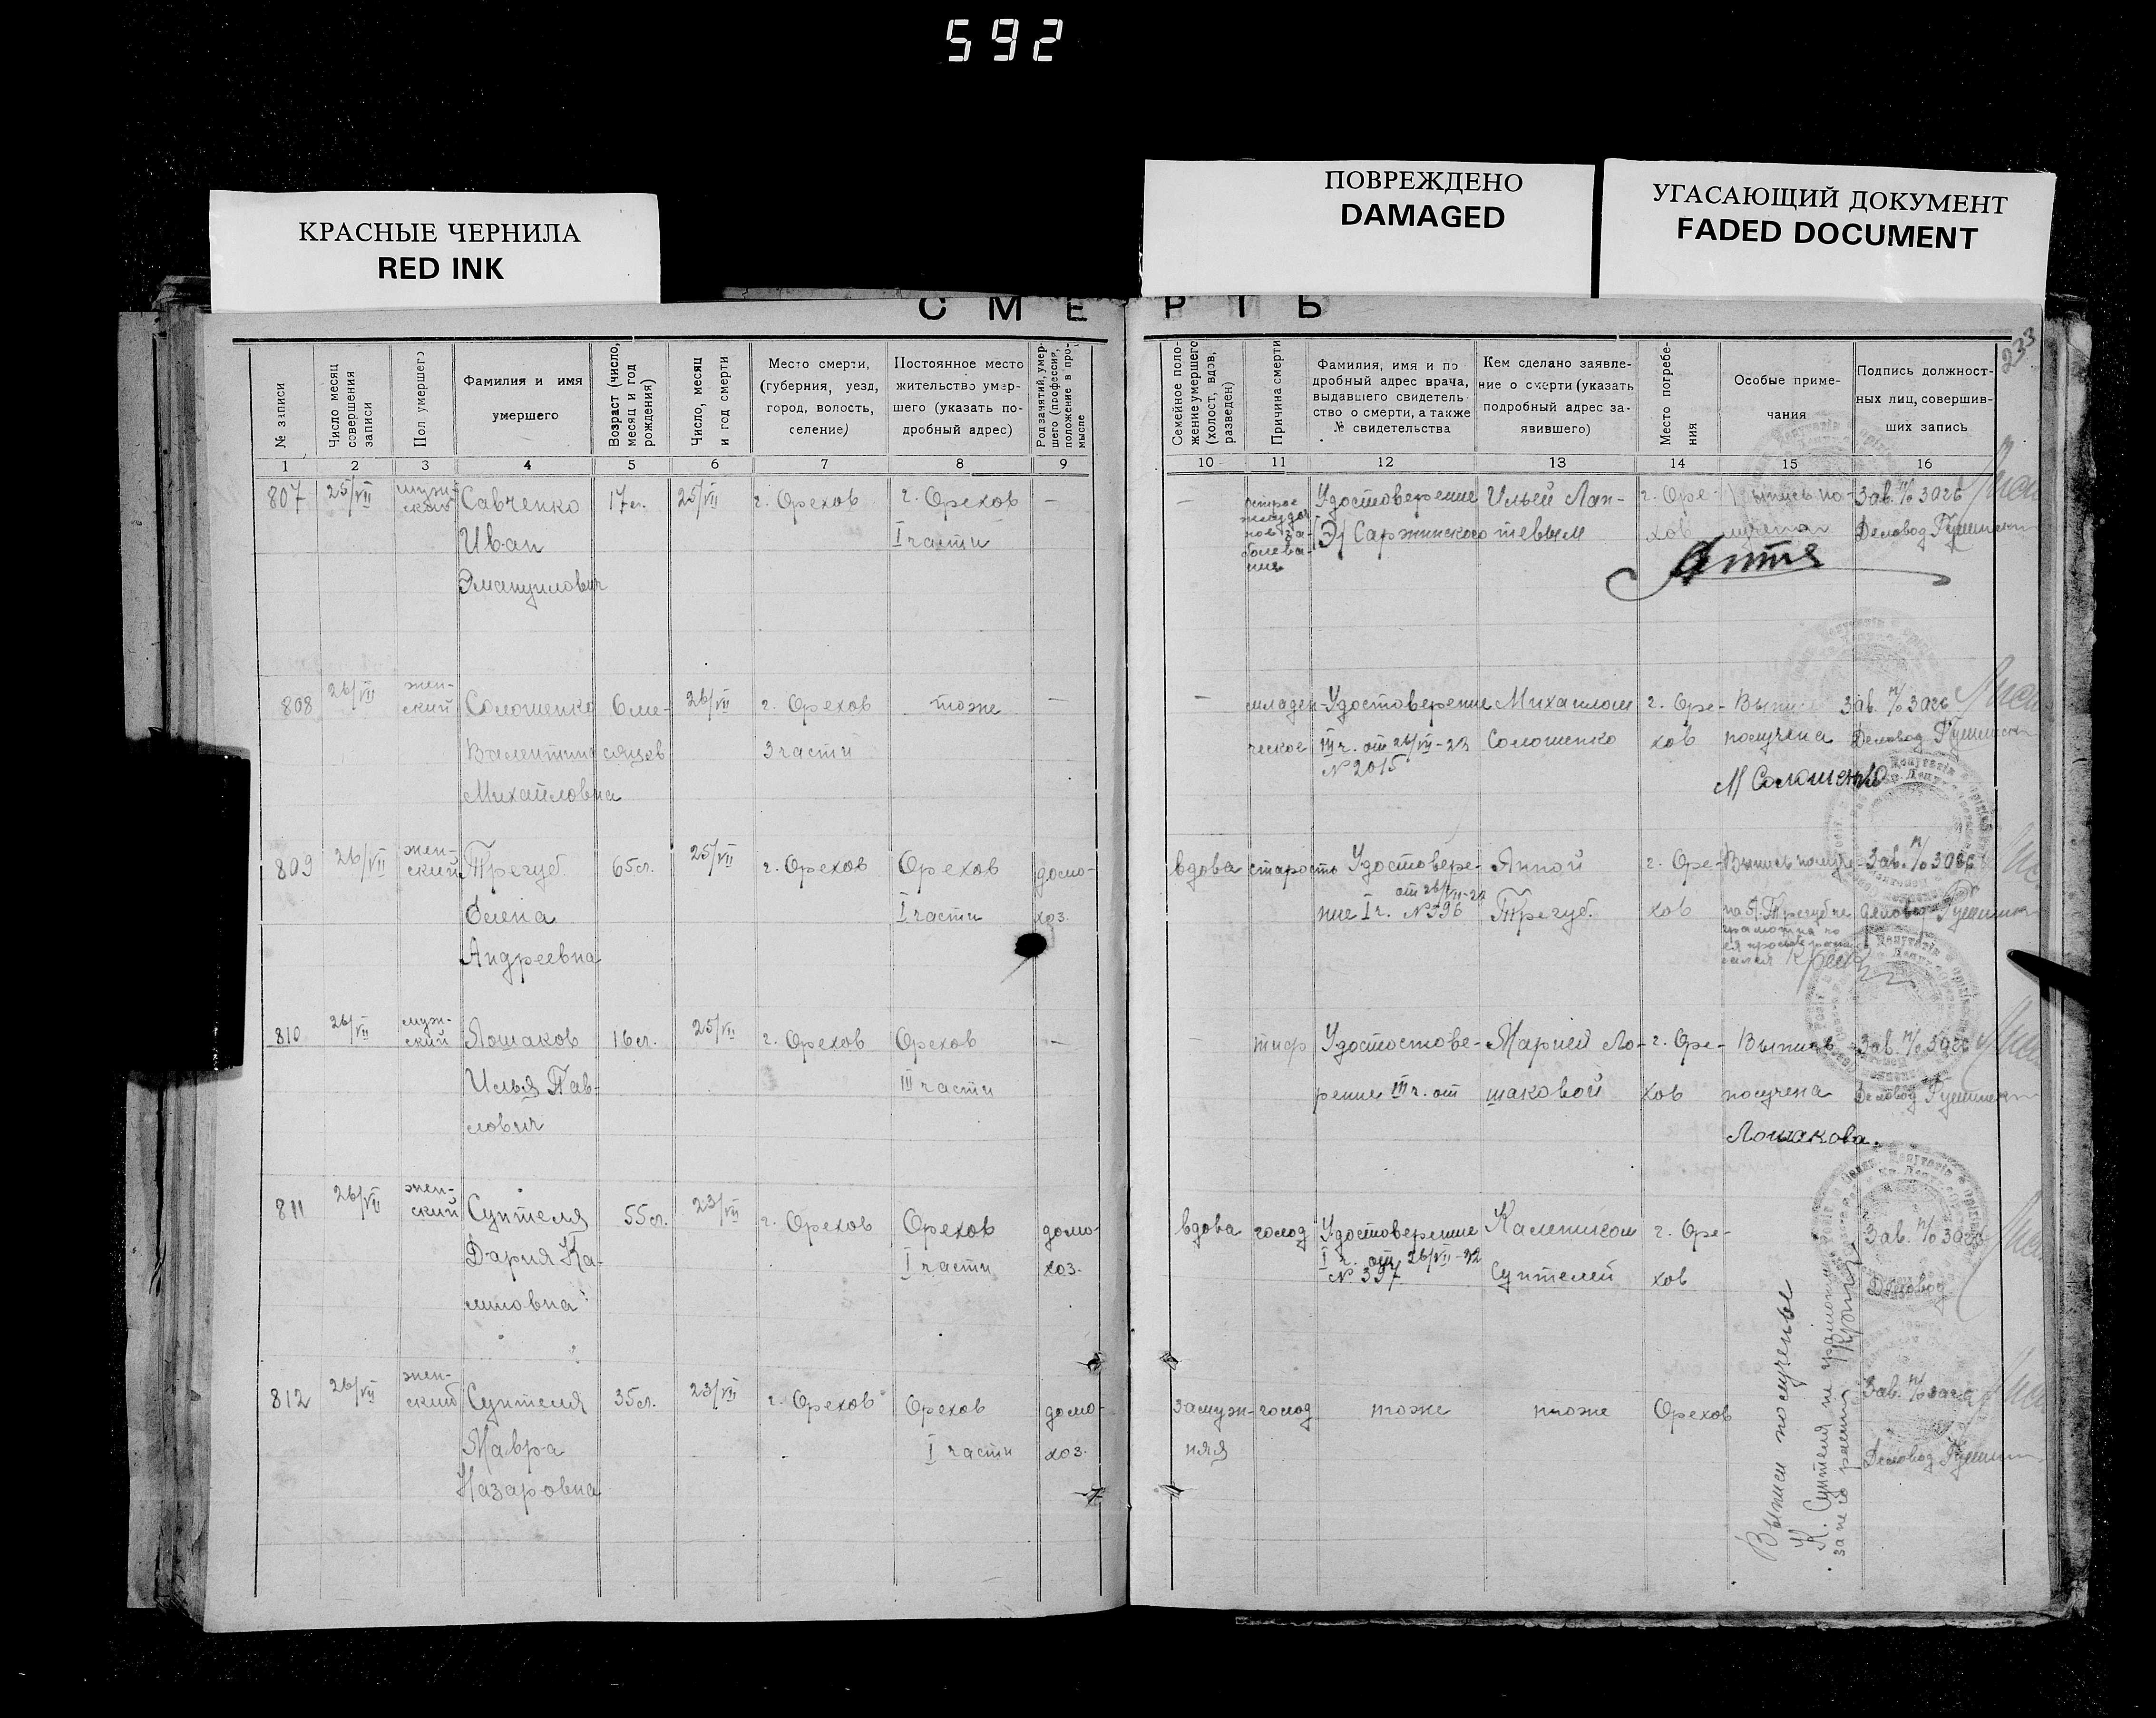 592
КРАСНЫЕ ЧЕРНИЛА
RED INK
ПОВРЕЖДЕНО
DAMAGED
УГАСАЮЩИЙ ДОКУМЕНТ
FADED DOCUMENT
СМЕРТЬ
233
№ записи
Число месяц совершения записи
Пол умершего
Фамилия и имя умершего
Возраст (число, месяц и год рождения)
Число, месяц и год смерти
Место смерти, (губерния, уезд, город, волость, селение)
Постоянное место жительство умершего (указать подробный адрес)
Род занятий, умершего (профессия, положение в промысле
Семейное положение умершего (холост, вдов, разведен)
Причина смерти
Фамилия, имя и подробный адрес врача, выдавшего свидетельство о смерти, а также № свидетельства
Кем сделано заявление о смерти (указать подробный адрес заявившего)
Место погребения
Особые примечания
Подпись должностных лиц, совершивших запись
1 2 3 4 5 6 7 8 9 10 11 12 13 14 15 16
807 25/VII мужской Савченко 17 л. 25/VII г. Орехов г. Орехов — — Удостоверение Ильей Лап- г. Оре- Зав. п/о Загс
Иван I части Саржинского тевым хов Деловод
Эмануилович
808 26/VII жен- Солошенко 6 ме- 26/VII г. Орехов тоже — — младен- Удостоверение Михаилом г. Оре- Выпись Зав. п/о Загс
ский
Валентина сяцев 3 части ческое III ч. от 26/VII-22 Солошенко хов получена Деловод
№ 2015
Михайловна М Солошенко
809 26/VII жен- Трегуб 65 л. 25/VII г. Орехов Орехов домо- вдова старость Удостовере- Анной г. Оре- Выпись получе- Зав. п/о Загс
ский
Елена I части хоз. ние I ч. от 26/VII-22 № 396 Трегуб. хов на А. Трегуб не Деловод
Андреевна
810 26/VII муж- Лошаков 16 л. 25/VII г. Орехов Орехов — — тиф Удостостове- Марией Ло- г. Оре- Выпись Зав. п/о Загс
ский
Илья Пав- III части рение III ч. от шаковой хов получена Деловод
лович Лошакова.
811 26/VII жен- Суптеля 55 л. 23/VII г. Орехов Орехов домо- вдова голод Удостоверение Калеником г. Оре- Зав. п/о Загс
ский
Дария Ка- I части хоз. I ч. от 26/VII-22 № 397 Суптелей хов Деловод
812 26/VII жен- Суптеля 35 л. 23/VII г. Орехов Орехов домо- замуж- голод тоже тоже Орехов Зав. п/о Загс
ский
Мавра I части хоз. няя Деловод
Назаровна
Выписи получены
К. Суптеля не грамотный
за него